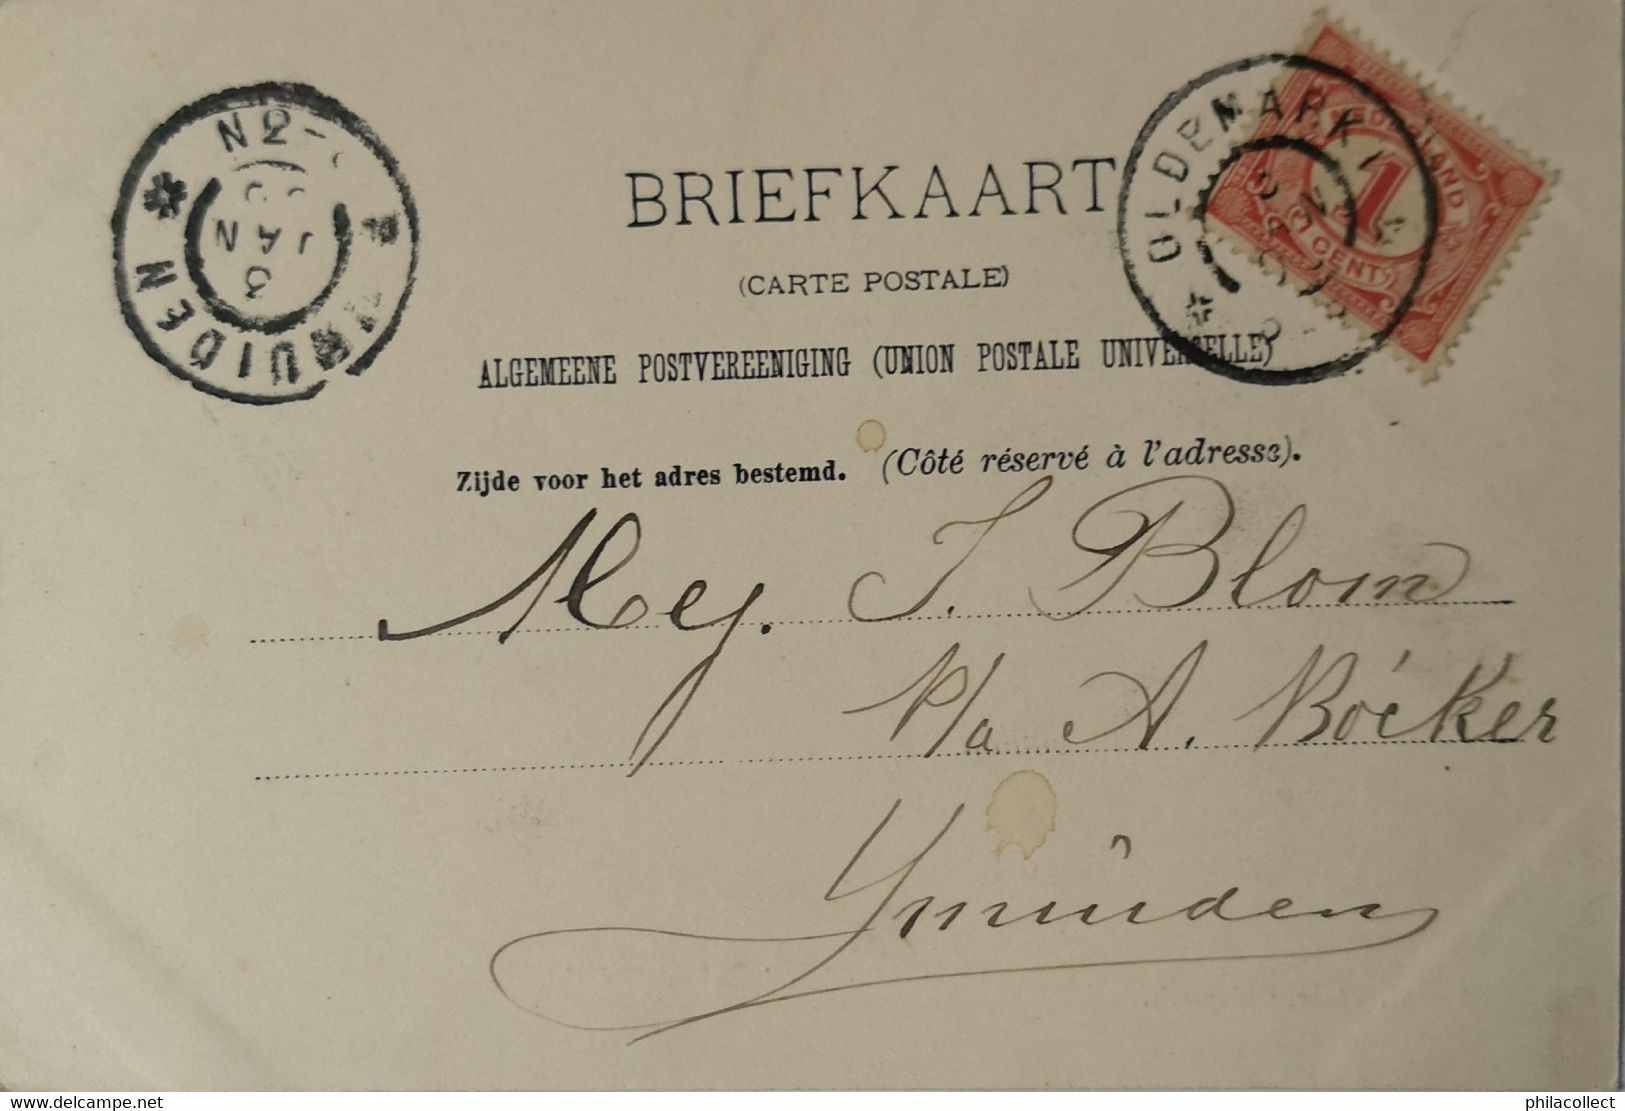 BRIEFKAART
(CARTE POSTALE)
ALGEMEENE POSTVEREENIGING (UNION POSTALE UNIVERSELLE)
Zijde voor het adres bestemd. (Côté réservé à l'adresse).
Mej. J. Blom
p/a A. Bócker
Ymuiden
OLDEMARKT
NEDERLAND
1
CENT
N2-
JAN
MUIDEN
philacollect.com
philacollect